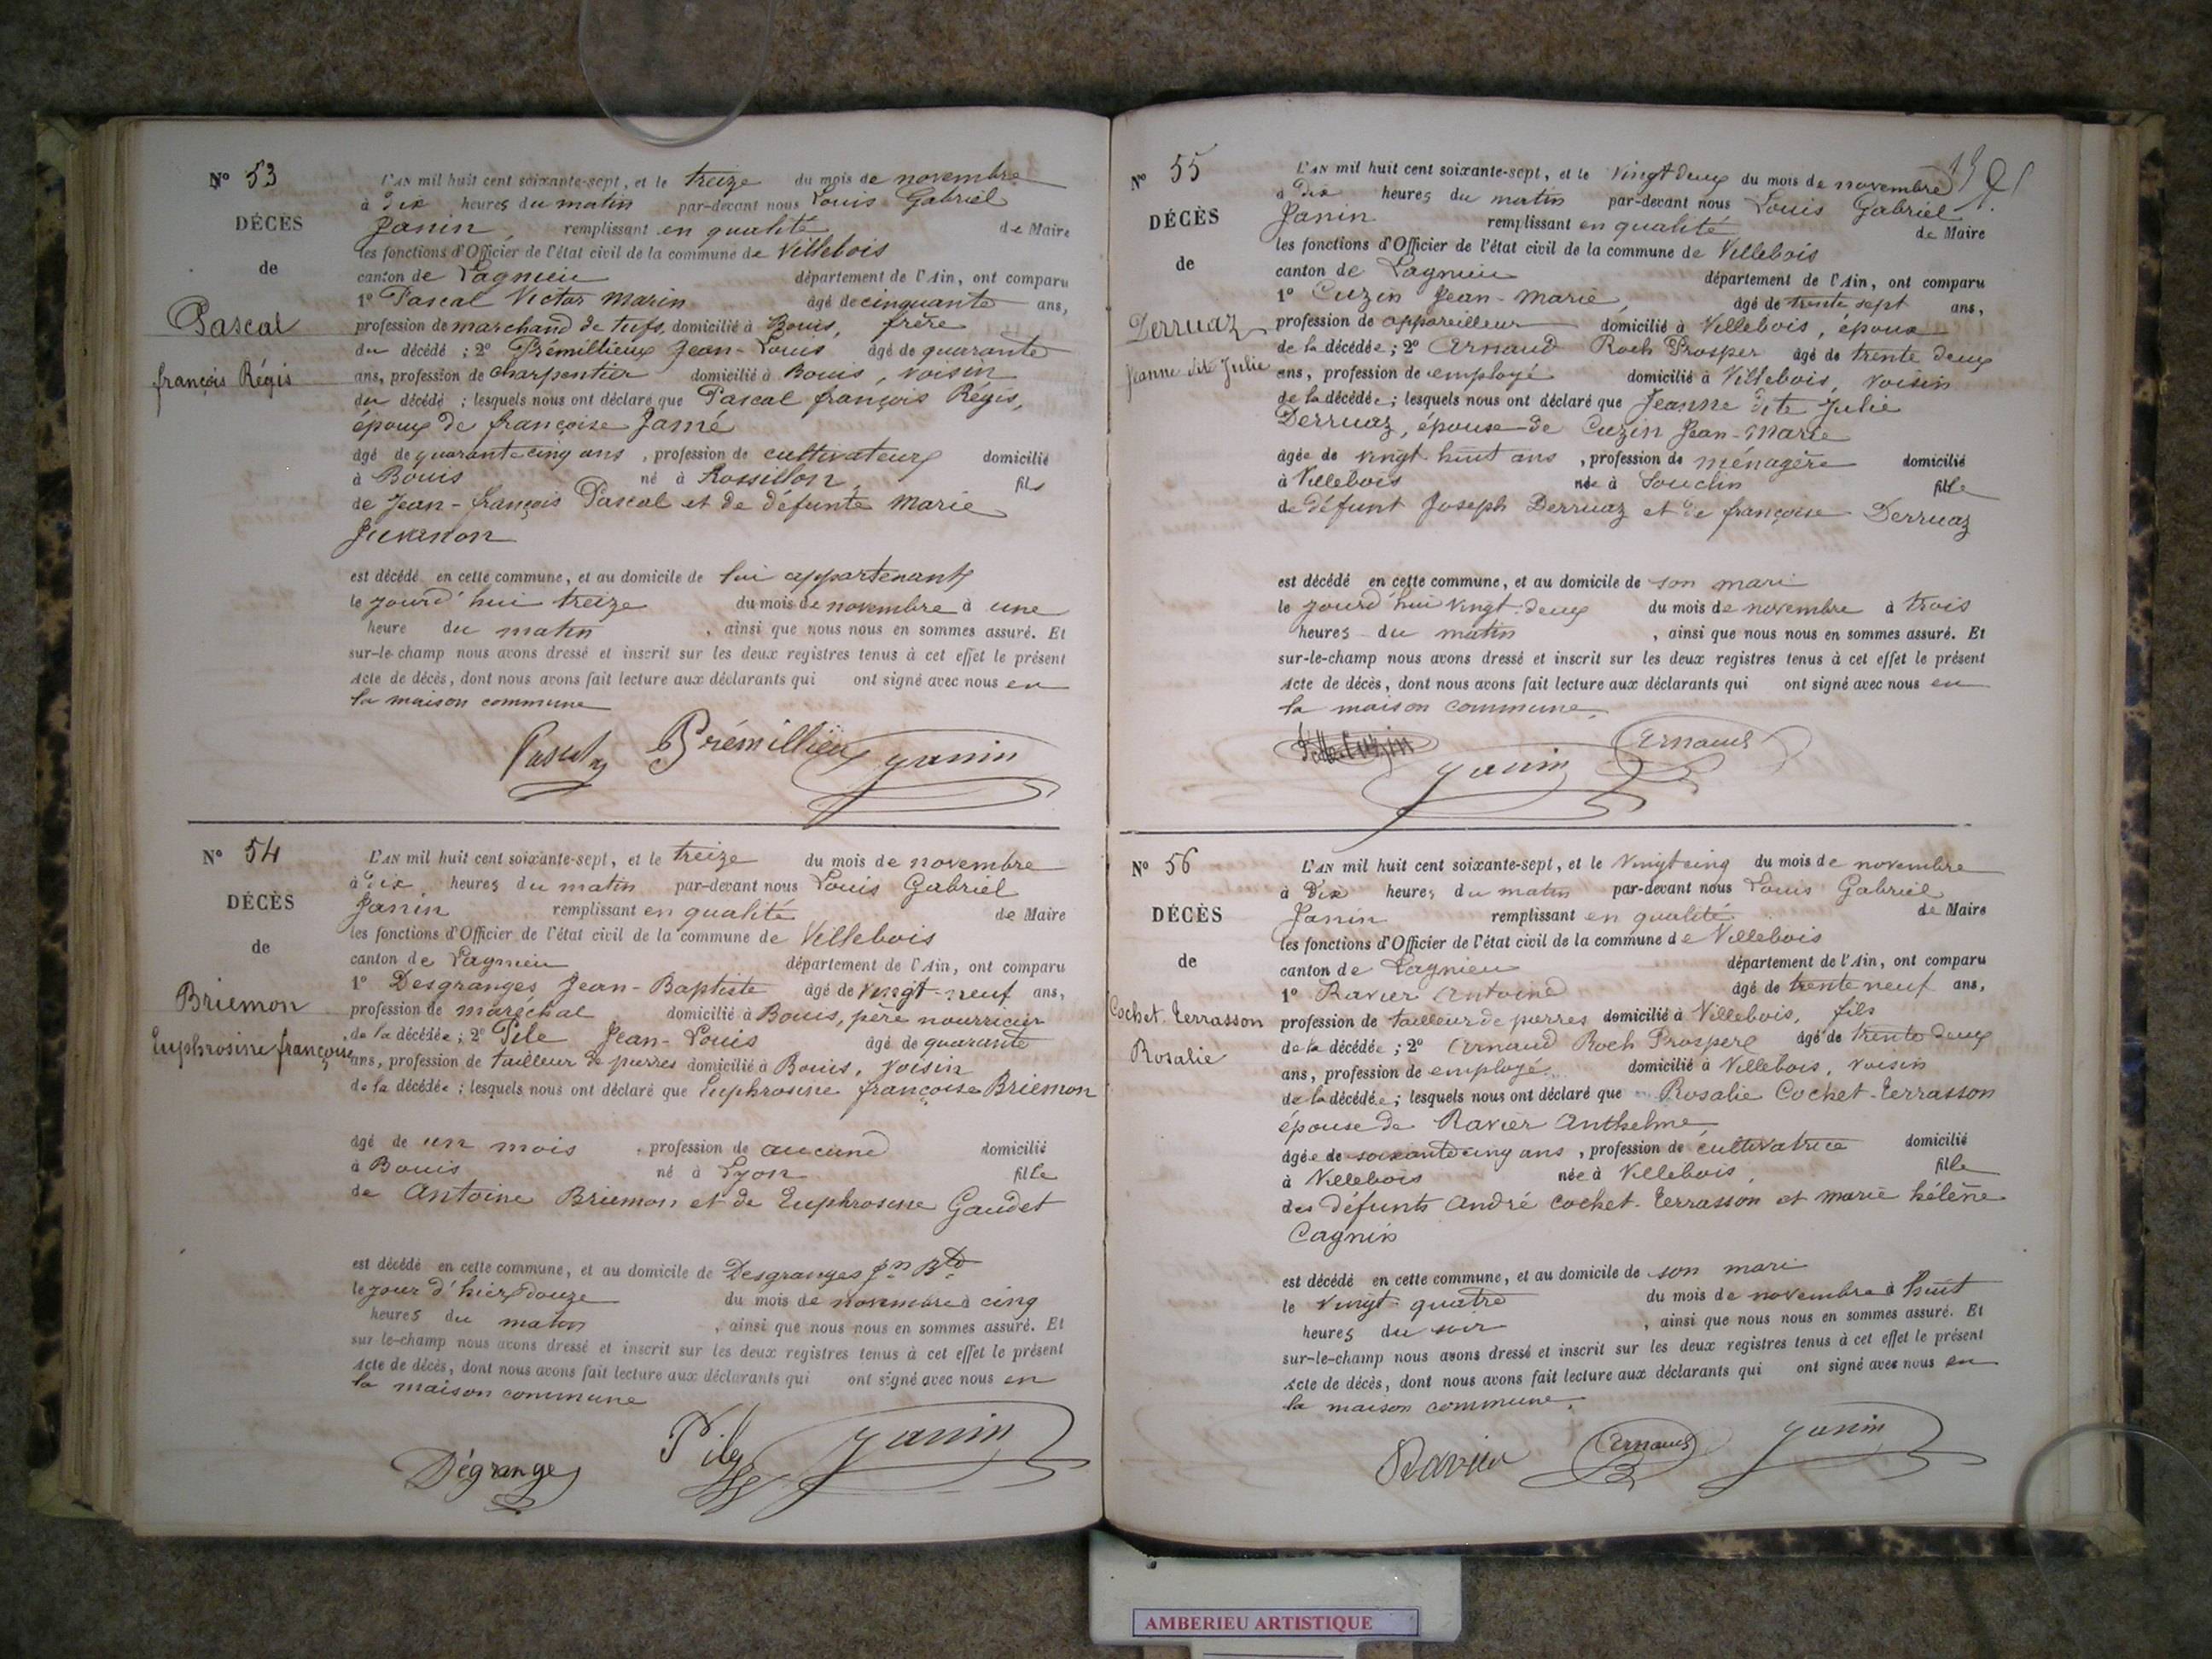 N° 53
DÉCÈS
de
Pascal
françois Régis
L'AN mil huit cent soixante-sept, et le treize du mois de novembre
à Dix heures du matin par-devant nous Louis Gabriel
Janin, remplissant en qualité de Maire
les fonctions d'Officier de l'état civil de la commune de Villebois
canton de Lagnieu département de l'Ain, ont comparu
1° Pascal Victor Marin âgé de cinquante ans,
profession de marchand de tufs, domicilié à Bouis, frère
du décédé ; 2° Prémillieux Jean-Louis âgé de quarante
ans, profession de charpentier domicilié à Bouis, voisin
du décédé ; lesquels nous ont déclaré que Pascal françois Régis,
époux de françoise Jamé
âgé de quarante cinq ans, profession de cultivateur domicilié
à Bouis né à Rossillon, fils
de Jean-françois Pascal et de défunte Marie
Juvanon
est décédé en cette commune, et au domicile de lui appartenant
le jourd'hui treize du mois de novembre à une
heure du matin, ainsi que nous nous en sommes assuré. Et
sur-le-champ nous avons dressé et inscrit sur les deux registres tenus à cet effet le présent
Acte de décès, dont nous avons fait lecture aux déclarants qui ont signé avec nous en
la maison commune
Pascal Prémillieux Janin
N° 54
DÉCÈS
de
Briemon
Euphrosine françoise
L'AN mil huit cent soixante-sept, et le treize du mois de novembre
à Dix heures du matin par-devant nous Louis Gabriel
Janin remplissant en qualité de Maire
les fonctions d'Officier de l'état civil de la commune de Villebois
canton de Lagnieu département de l'Ain, ont comparu
1° Desgranges Jean-Baptiste âgé de vingt-neuf ans,
profession de maréchal domicilié à Bouis, père nourricier
de la décédée ; 2° Pile Jean-Louis âgé de quarante
ans, profession de tailleur de pierres domicilié à Bouis, voisin
de la décédée ; lesquels nous ont déclaré que Euphrosine françoise Briemon
âgé de un mois, profession de aucune domicilié
à Bouis né à Lyon fille
de Antoine Briemon et de Euphrosine Gaudet
est décédé en cette commune, et au domicile de Desgranges Jn Bte
le jour d'hier douze du mois de novembre à cinq
heures du matin, ainsi que nous nous en sommes assuré. Et
sur-le-champ nous avons dressé et inscrit sur les deux registres tenus à cet effet le présent
Acte de décès, dont nous avons fait lecture aux déclarants qui ont signé avec nous en
la maison commune
Dégranges Pile Janin
N° 55
DÉCÈS
de
Derruaz
Jeanne dite Julie
L'AN mil huit cent soixante-sept, et le vingt deux du mois de novembre
à Dix heures du matin par-devant nous Louis Gabriel
Janin remplissant en qualité de Maire
les fonctions d'Officier de l'état civil de la commune de Villebois
canton de Lagnieu département de l'Ain, ont comparu
1° Cuzin Jean-Marie, âgé de trente sept ans,
profession de appareilleur domicilié à Villebois, époux
de la décédée ; 2° Arnaud Roch Prosper âgé de trente deux
ans, profession de employé domicilié à Villebois, voisin
de la décédée ; lesquels nous ont déclaré que Jeanne dite Julie
Derruaz, épouse de Cuzin Jean-Marie
âgée de vingt-huit ans, profession de ménagère domicilié
à Villebois née à Souclin fille
de défunt Joseph Derruaz et de françoise Derruaz
est décédé en cette commune, et au domicile de son mari
le jourd'hui vingt-deux du mois de novembre à trois
heures du matin, ainsi que nous nous en sommes assuré. Et
sur-le-champ nous avons dressé et inscrit sur les deux registres tenus à cet effet le présent
Acte de décès, dont nous avons fait lecture aux déclarants qui ont signé avec nous en
la maison commune.
Cuzin Janin Arnaud
N° 56
DÉCÈS
de
Cochet-Terrasson
Rosalie
L'AN mil huit cent soixante-sept, et le vingt cinq du mois de novembre
à Dix heures du matin par-devant nous Louis Gabriel
Janin remplissant en qualité de Maire
les fonctions d'Officier de l'état civil de la commune de Villebois
canton de Lagnieu département de l'Ain, ont comparu
1° Ravier Antoine âgé de trente neuf ans,
profession de tailleur de pierres domicilié à Villebois, fils
de la décédée ; 2° Arnaud Roch Prosper âgé de trente deux
ans, profession de employé domicilié à Villebois, voisin
de la décédée ; lesquels nous ont déclaré que Rosalie Cochet-Terrasson
épouse de Ravier Anthelme
âgée de soixante cinq ans, profession de cultivatrice domicilié
à Villebois née à Villebois, fille
des défunts André Cochet-Terrasson et marie hélène
Cagnin
est décédé en cette commune, et au domicile de son mari
le vingt-quatre du mois de novembre à huit
heures du soir, ainsi que nous nous en sommes assuré. Et
sur-le-champ nous avons dressé et inscrit sur les deux registres tenus à cet effet le présent
Acte de décès, dont nous avons fait lecture aux déclarants qui ont signé avec nous en
la maison commune.
Ravier Arnaud Janin
AMBERIEU ARTISTIQUE